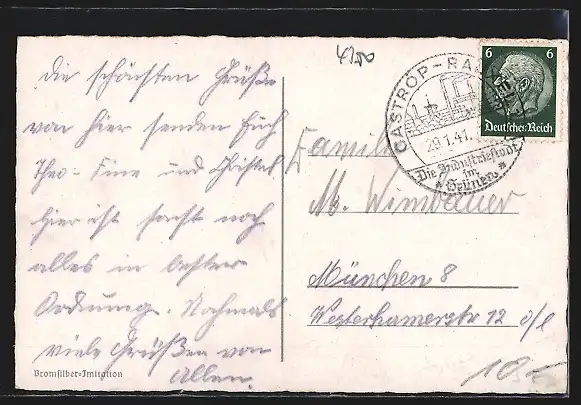 4200
6 6
Deutsches Reich
CASTROP-RA
29.1.41.
Die Industriestadt
im
* Grünen *
Die schönsten Grüße
von hier senden Euch
Theo- und Christel
hier ist sonst noch
alles in bester
Ordnung. Nochmals
viele Grüßen von
Allen.
Familie
M. Wimbauer
München 8
Westerhamerstr 12 o/l
Bromsilber-Imitation
10.-